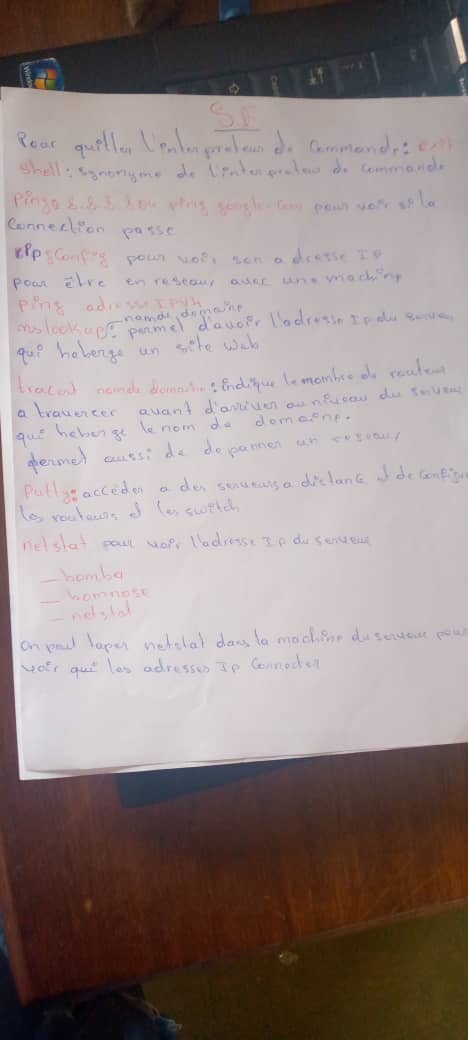 S.E
Pour quitter l'interpreteur de commande: exit
Shell: synonyme de l'interpreteur de commande
Ping 8.8.8.8 ou ping google.com pour voir si la
connection passe
ipconfig pour voir son adresse IP
pour être en reseau avec une machine
Ping adresse IPV4
nslookup: nom de domaine
permet d'avoir l'adresse Ip du serveur
qui heberge un site web
tracert nom de domaine: indique le nombre de routeur
a travercer avant d'arriver au niveau du serveur
qui heberge le nom de domaine.
permet aussi de depanner un reseau
Putty: accéder a des serveurs a distance et de configurer
les routeurs et les switch
netstat pour voir l'adresse Ip du serveur
- bomba
- homnose
- netstat
On peut taper netstat dans la machine du serveur pour
voir qui les adresses Ip connecter